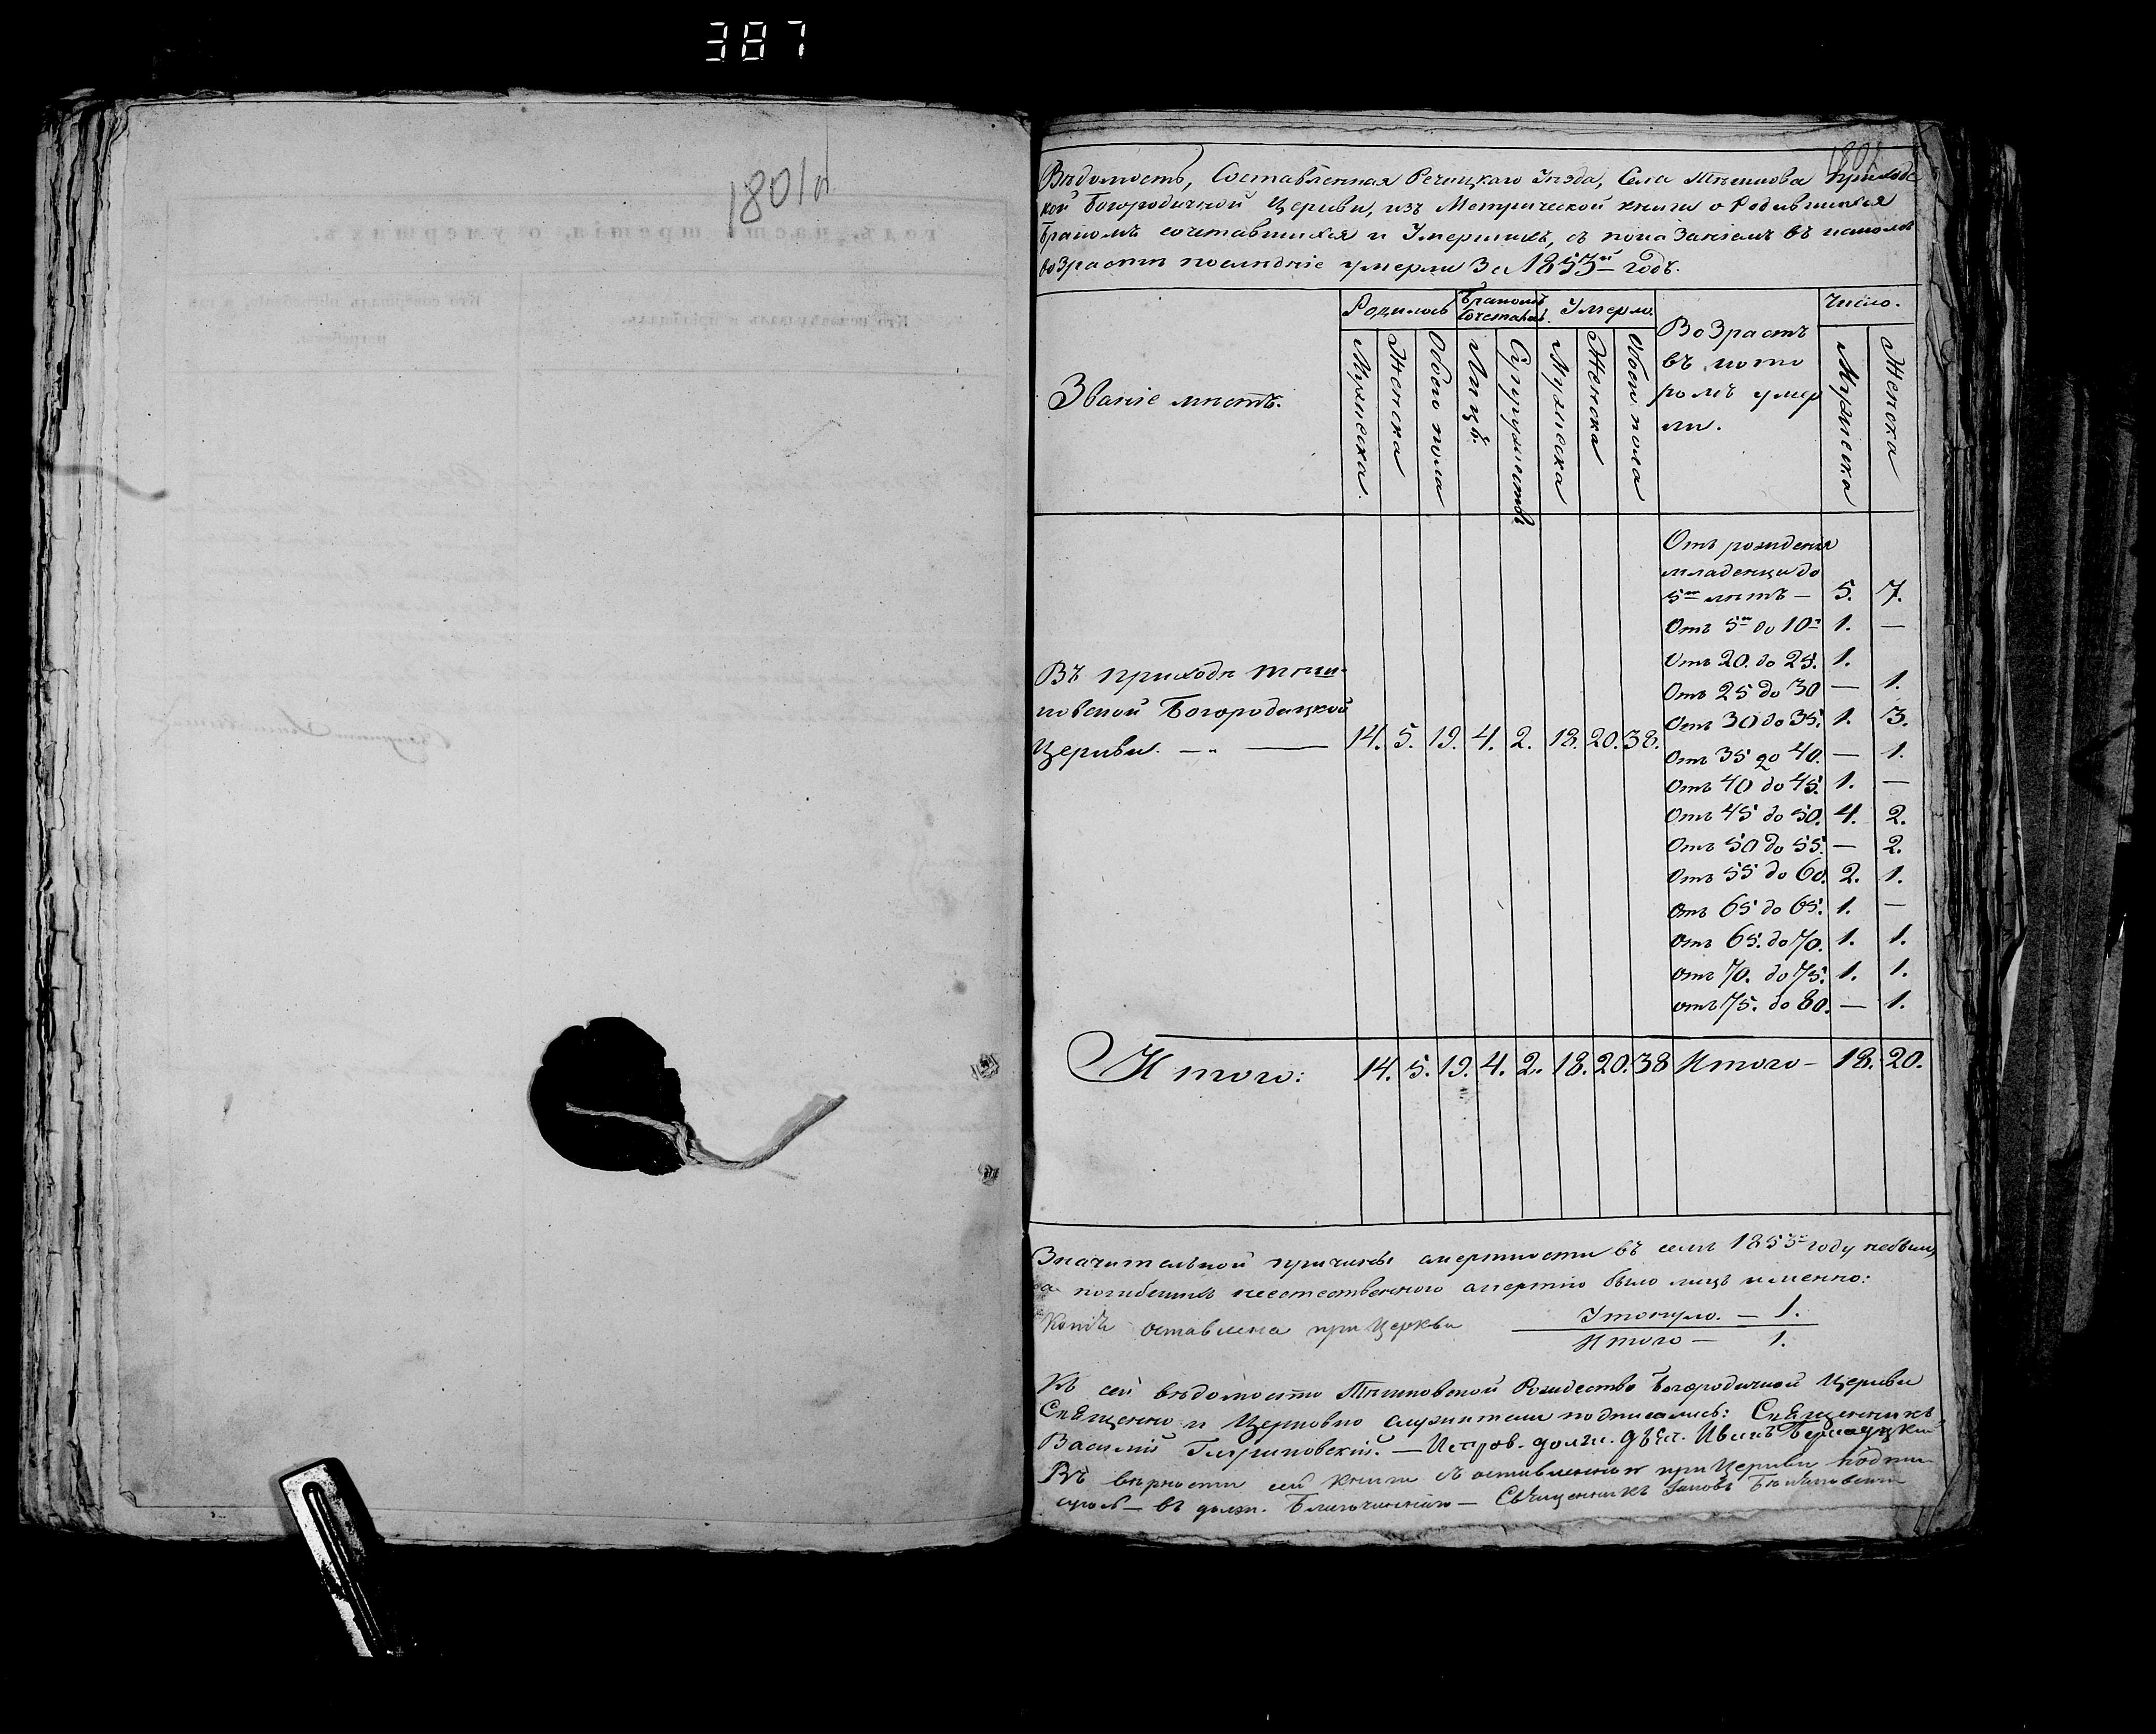 387
1801
1802
Вѣдомость, Составленная Речицкаго Уѣзда, Села приходс
кой Богородичной Церкви, изъ Метрической книги о Родившихся
бракомъ сочетавшихся и Умершихъ, съ показаніемъ въ какомъ
возрастѣ послѣдніе умерли За 1853й годъ.
Званіе мѣстъ.
Родилось
Бракомъ Сочеталось.
Умерло.
Возрастъ
въ кото
ромъ умер
ли.
Число.
Мужеска.
Женска
Обоего пола
Лицъ.
Супружествъ
Мужеска
Женска
Обоего пола
Мужеска
Женска
Отъ рожденія
младенца до
5ти лѣтъ — 5. 7.
Отъ 5ти до 10ти 1. —
Отъ 20. до 25. 1.
Отъ 25 до 30 — 1.
Отъ 30 до 35. 1. 3.
Отъ 35 до 40. — 1.
Отъ 40 до 45. 1. —
Отъ 45 до 50. 4. 2.
Отъ 50 до 55. — 2.
Отъ 55 до 60. 2. 1.
Отъ 65 до 65. 1. —
Отъ 65. до 70. 1. 1.
отъ 70. до 75. 1. 1.
отъ 75. до 80. — 1.
Въ приходѣ
Богородицкой
Церкви. — 14. 5. 19. 4. 2. 18. 20. 38.
Итого: 14. 5. 19. 4. 2. 18. 20. 38 Итого — 18. 20.
Значительной причины смертности въ семъ 1853м году небыло,
а погибшихъ неестественною смертію было лицъ именно:
Утонуло. — 1.
Копія оставлена при Церкви
Итого — 1.
Къ сей вѣдомости Рождество Богородичной Церкви
Священно и Церковно служители подписались: Священникъ
Василій — Испров. должн. дьяч. Иванъ
Въ вѣрности сей книги съ оставленною при Церкви подпи
суюсь — въ должн. Благочиннаго — Священникъ